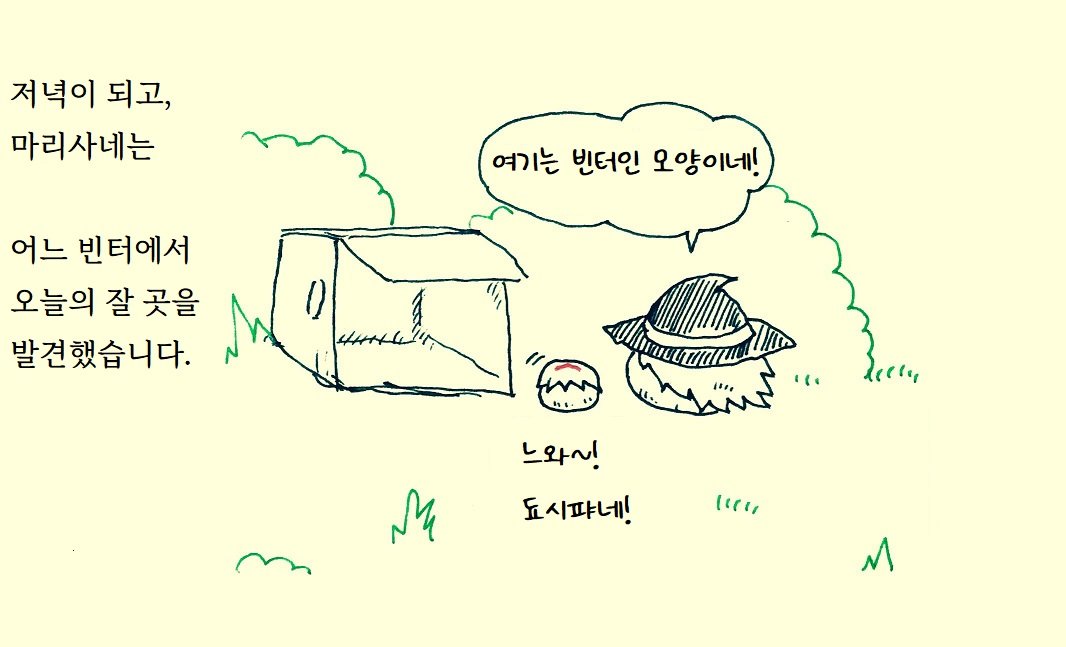 저녁이 되고,
마리사네는
어느 빈터에서
오늘의 잘 곳을
발견했습니다.
여기는 빈터인 모양이네!
느와~!
됴시퍄네!